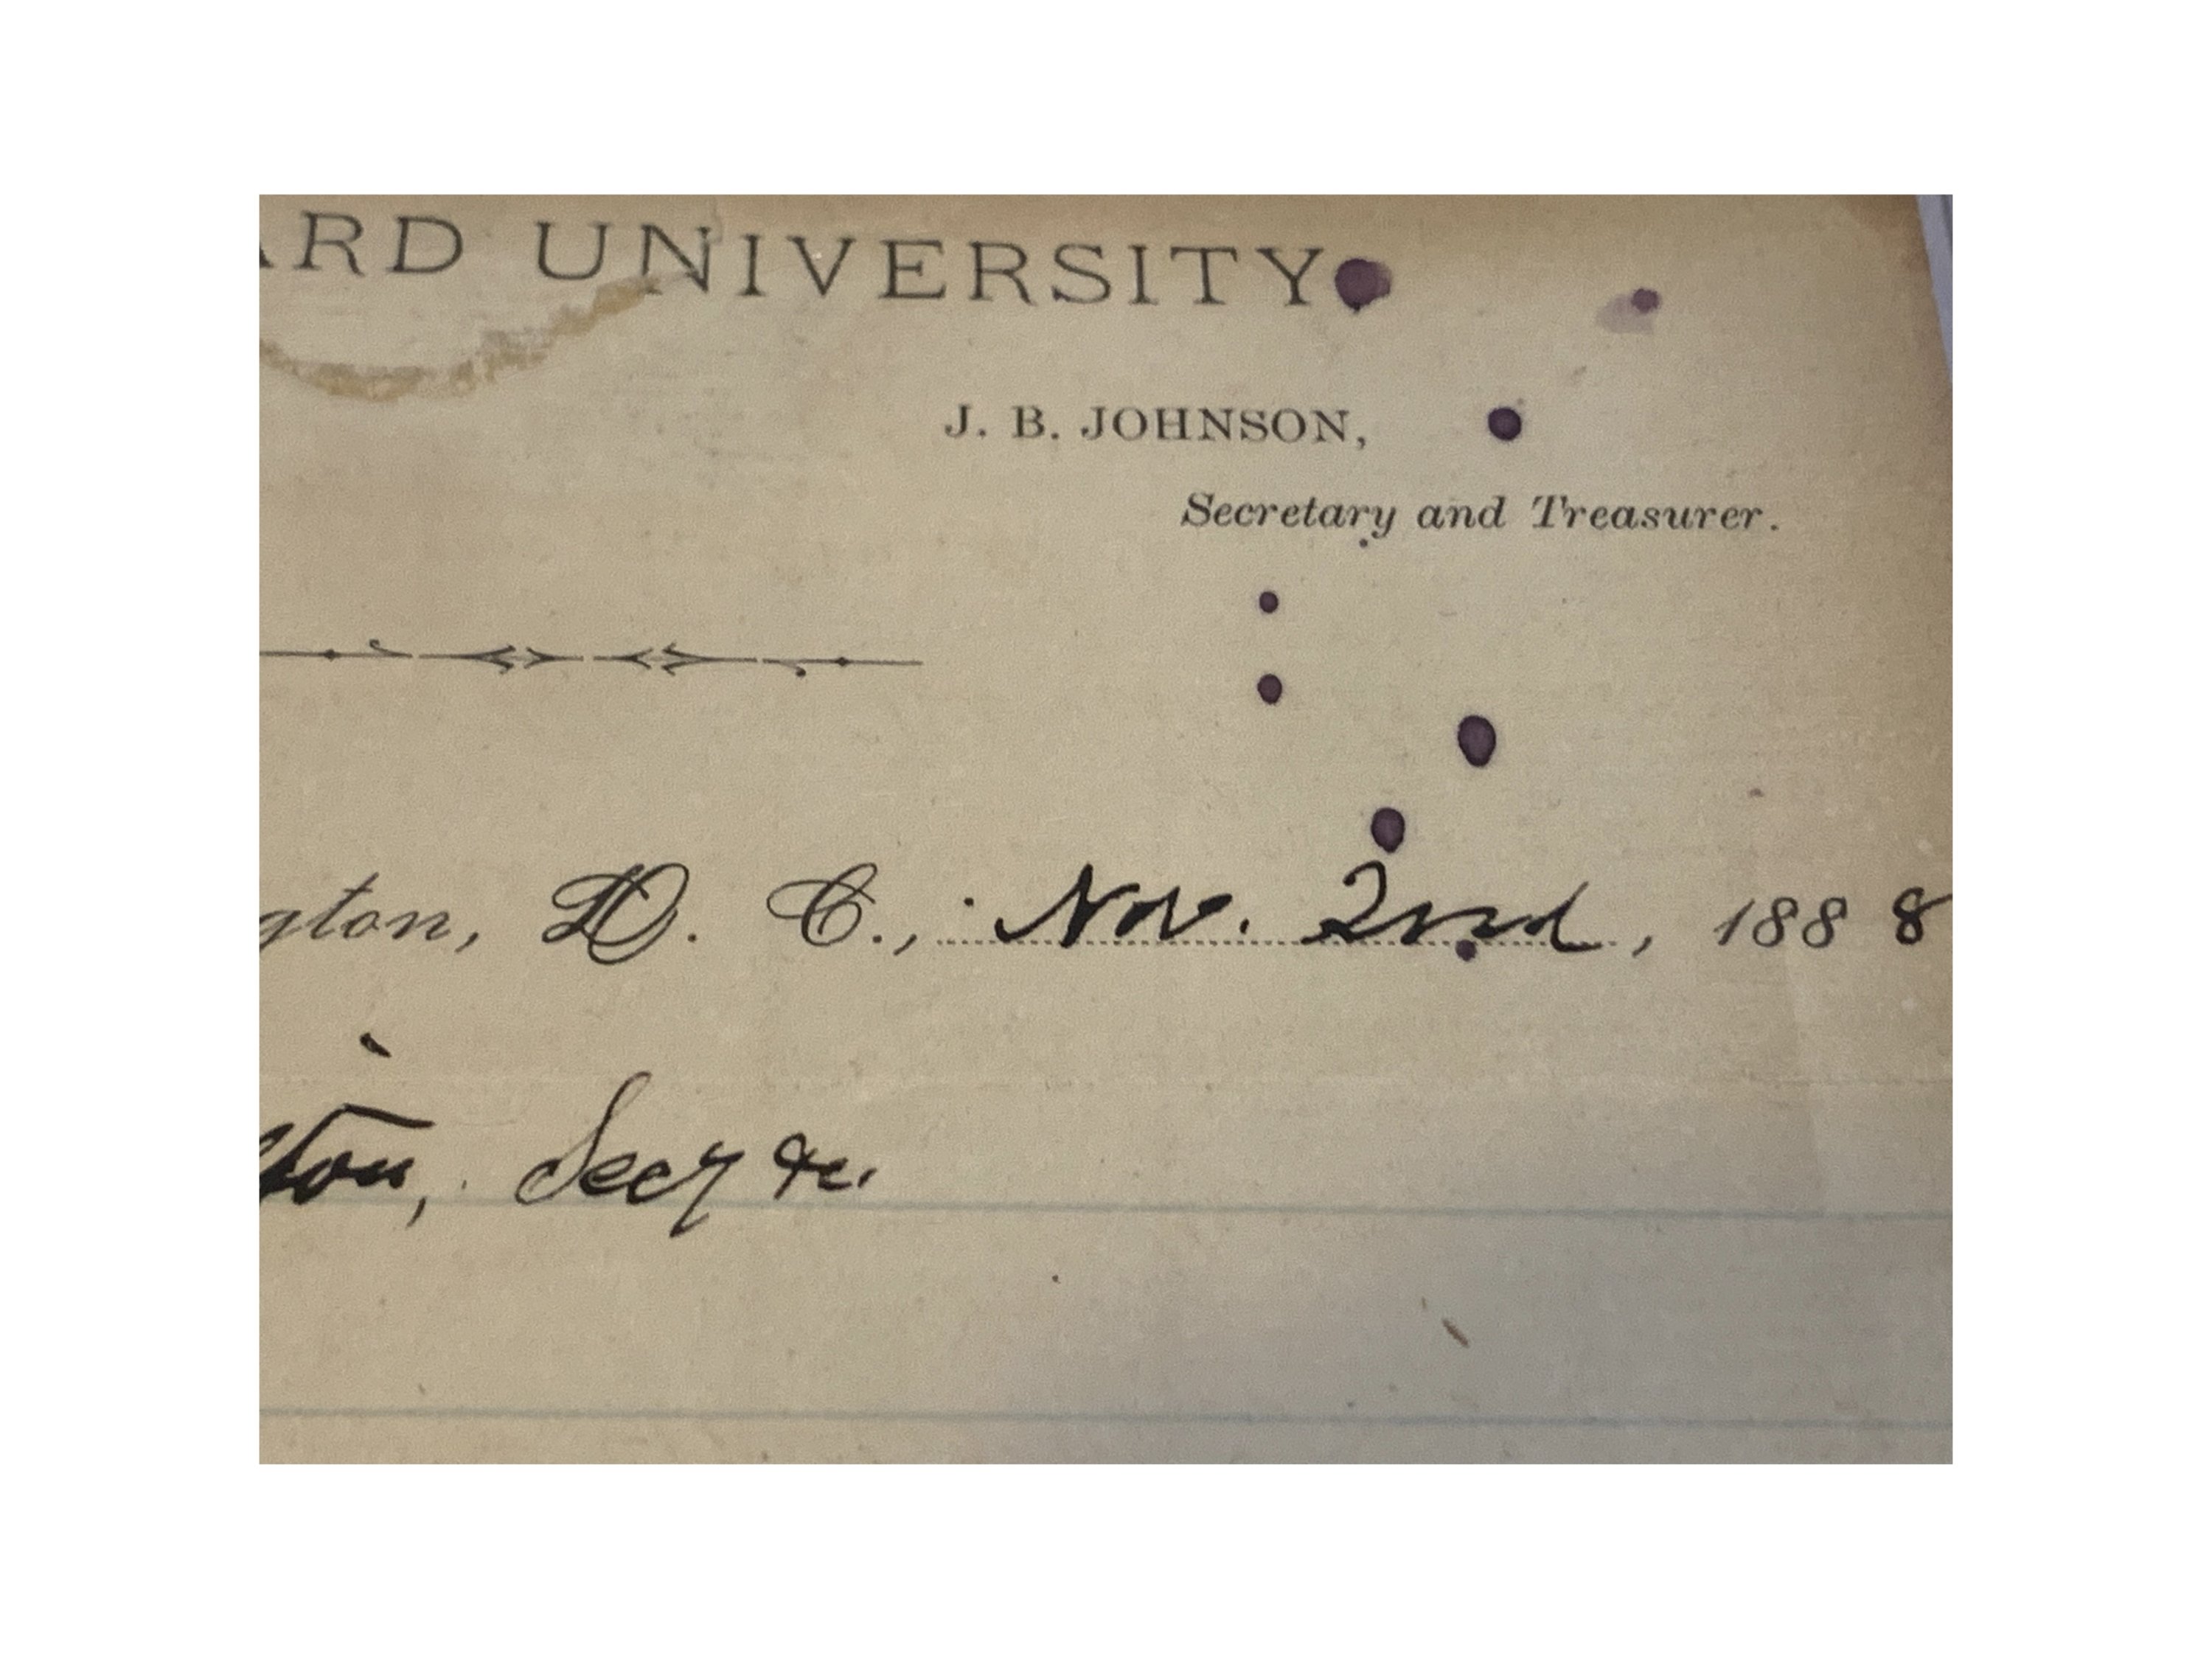 ARD UNIVERSITY
J. B. JOHNSON,
Secretary and Treasurer.
gton, D. C., Nov. 2nd, 1888
ton, Secy &c.